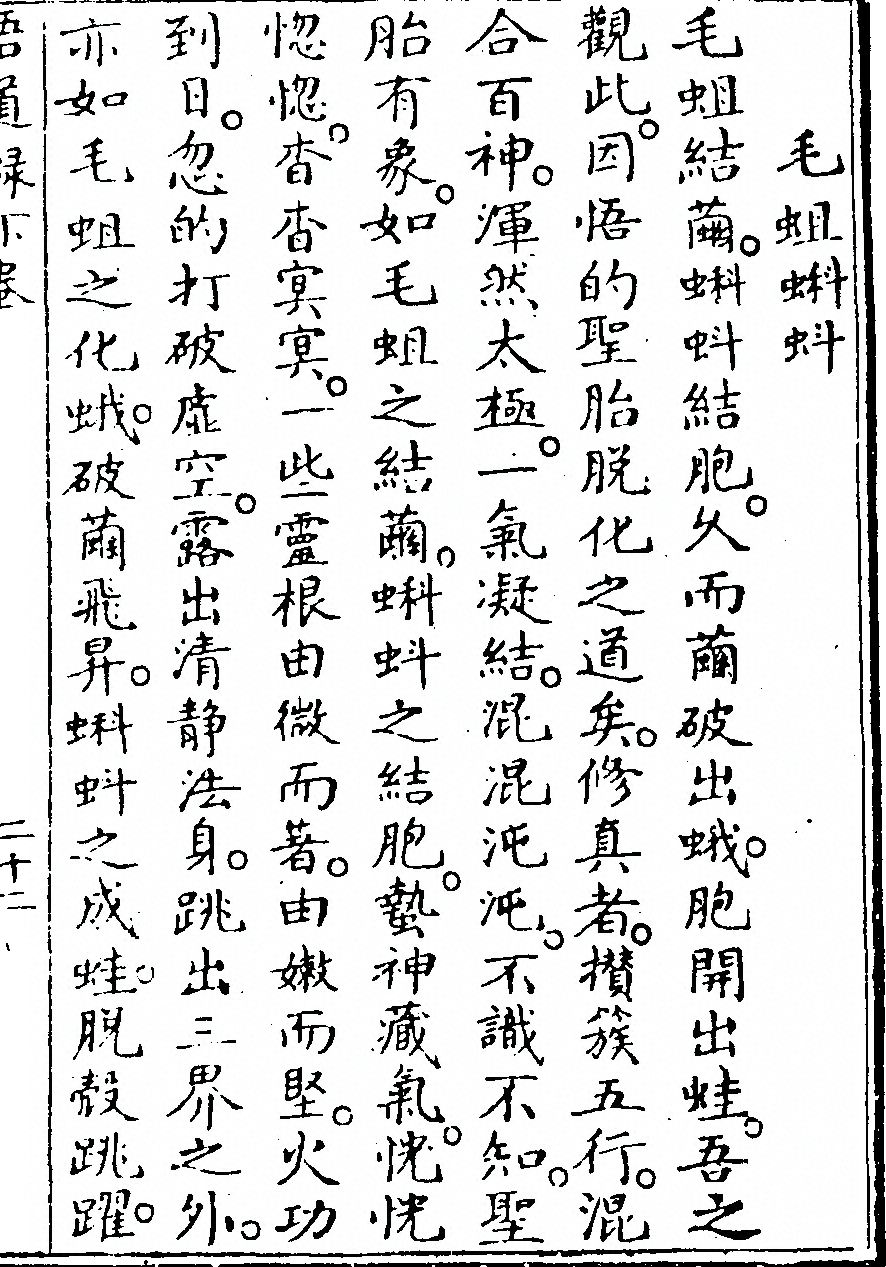 毛蛆蝌蚪
毛蛆結繭。蝌蚪結胞。久而繭破出蛾。胞開出蛙。吾之
觀此。因悟的聖胎脫化之道矣。修真者。攢簇五行。混
合百神。渾然太極。一氣凝結。混混沌沌。不識不知。聖
胎有象。如毛蛆之結繭。蝌蚪之結胞。蟄神藏氣。恍恍
惚惚。杳杳冥冥。一些靈根由微而著。由嫩而堅。火功
到日。忽的打破虛空。露出清靜法身。跳出三界之外。
亦如毛蛆之化蛾。破繭飛昇。蝌蚪之成蛙。脫殼跳躍。
悟道錄下卷
二十二